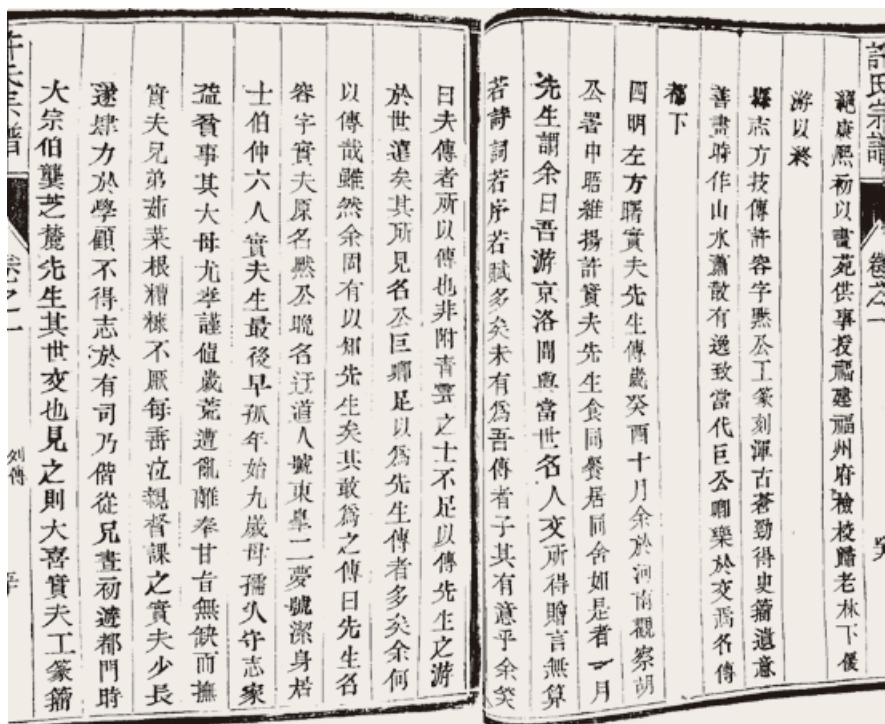 許氏宗譜 卷之一
絕康熙初以畫苑供事授福建福州府檢校歸老林下優
游以終
縣志方技傳許容字黙公工篆刻渾古蒼勁得史籀遺意
善畫時作山水蕭散有逸致當代巨公卿樂於交焉名傳
都下
四明左方曙實夫先生傳歲癸酉十月余於河南觀察胡
公署中晤維揚許實夫先生食同餐居同舍如是者月
先生謂余曰吾游京洛間與當世名人交所得贈言無算
若詩詞若序若賦多矣未有為吾傳者子其有意乎余笑
曰夫傳者所以傳也非附青雲之士不足以傳先生之游
於世遠矣其所見名公巨卿足以為先生傳者多矣余何
以傳哉雖然余固有以知先生矣其敢為之傳曰先生名
容字實夫原名黙公晚名迂道人號東皐二夢號潔身居
士伯仲六人實夫生最後早孤年始九歲母孺人守志家
益貧事其大母尤孝謹值歲荒遭亂離奉甘旨無缺而撫
實夫兄弟茹菜根糟糠不厭每泣親督課之實夫少長
遂肆力於學顧不得志於有司乃偕從兄晝初遊都門時
大宗伯龔芝麓先生其世交也見之則大喜實夫工篆籀
許氏宗譜 卷之一 列傳